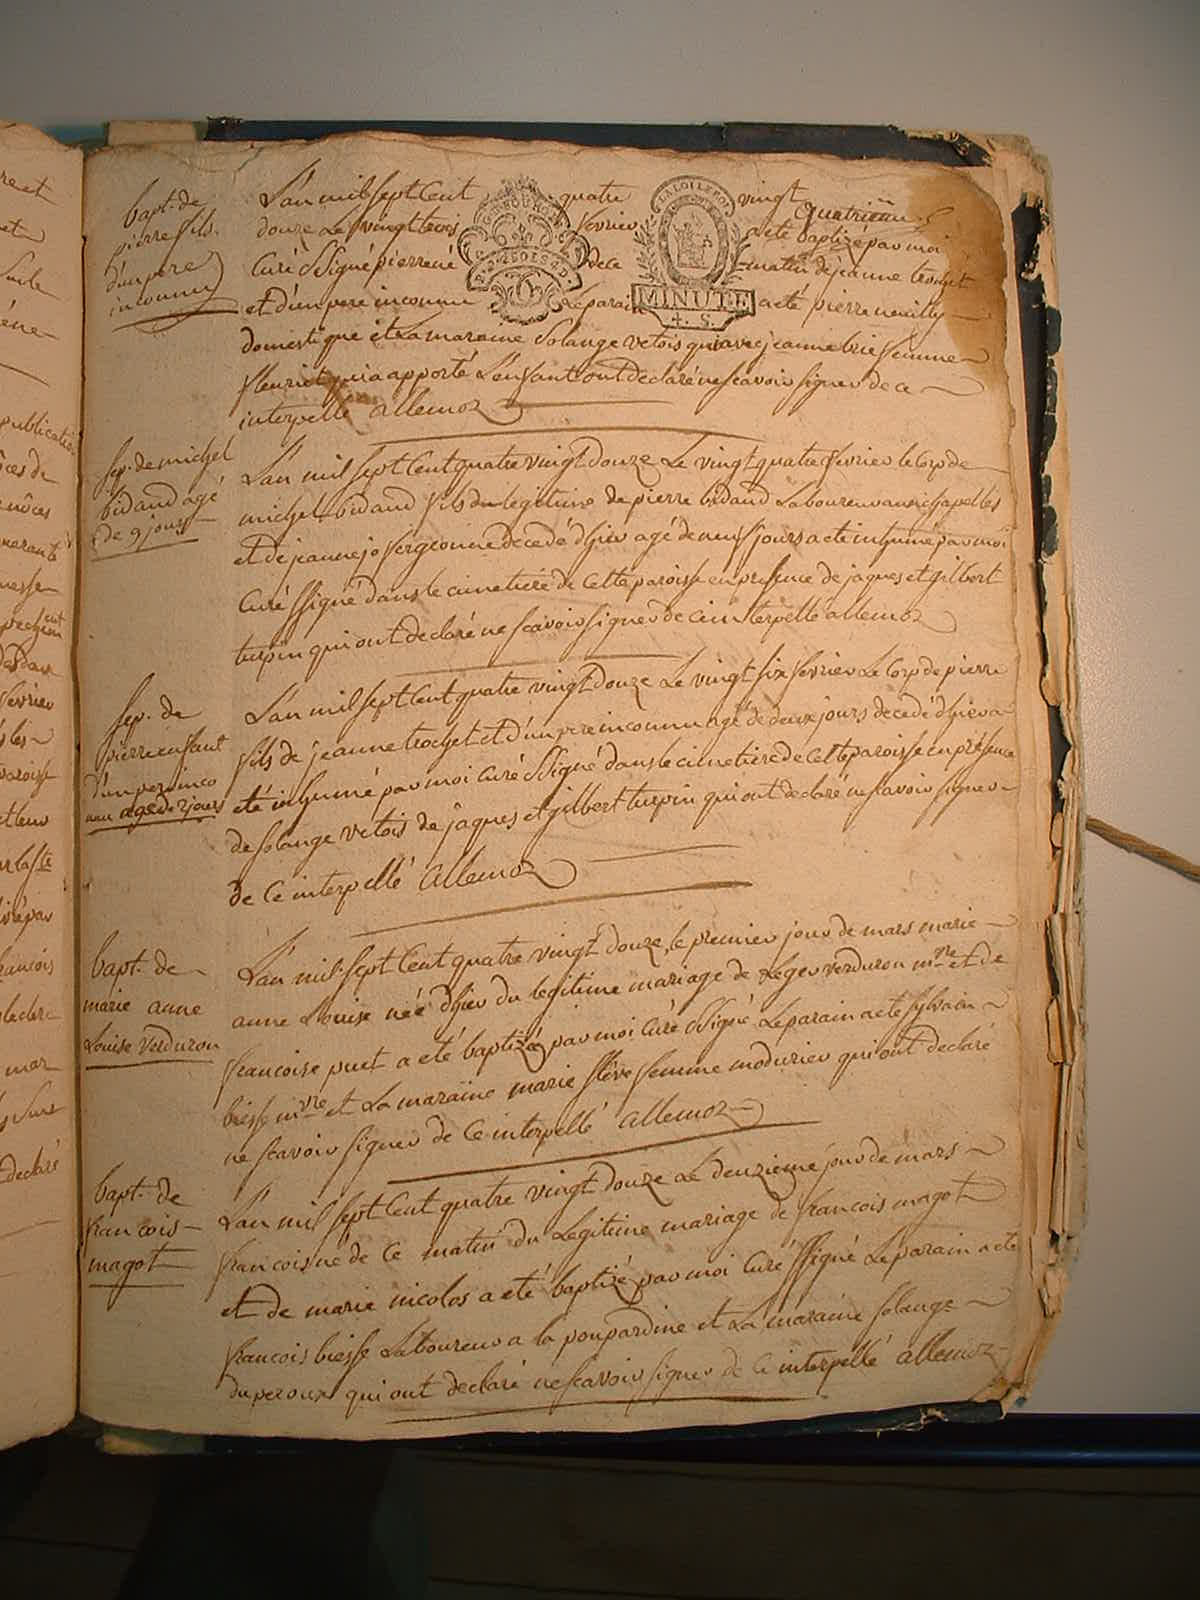 bapt. de
pierre fils.
d'un pere
inconnu
L'an mil sept Cent quatre vingt
quatrieme
douze Le vingt trois fevrier a eté baptizé par moi
Curé ssigné pierre né de ce matin de jeanne trochet
et d'un pere inconnu Le parain a eté pierre neuilly
domestique et La maraine Solange vetois qui avec jeanne brie femme
fleuriet qui a apporté L'enfant ont declaré ne scavoir signer de ce
interpellé allemoz
LA LOI LE ROI
MINUTE
4. S.
sep. de michel
bidaud agé
de 9 jours
L'an mil sept Cent quatre vingt douze Le vingt quatre fevrier le Corp de
michel bidaud fils legitime de pierre bidaud Laboureur aux chapelles
et de jeanne jo fergeonne decedé d'hier agé de neuf jours a eté inhumé par moi
Curé ssigné dans le cimetiere de Cette paroisse en presence de jaques et gilbert
turpin qui ont declaré ne scavoir signer de ce interpellé allemoz
sep. de
pierre enfant
d'un per inco
nnu agé de 2 jours
L'an mil sept Cent quatre vingt douze Le vingt six fevrier Le Corp de pierre
fils de jeanne trochet et d'un pere inconnu agé de deux jours decedé d'hier a
eté inhumé par moi Curé ssigné dans le cimetiere de Cette paroisse en présence
de solange vetois de jaques et gilbert turpin qui ont declaré ne scavoir signer
de Ce interpellé allemoz
bapt. de
marie anne
Louise verduron
L'an mil sept Cent quatre vingt douze, le premier jour de mars marie
anne Louise née d'hier du legitime mariage de Leger verduron mre et de
francoise puet a eté baptizé par moi Curé ssigné Le parain a eté sylvain
biesse mvre et La maraine marie stève femme modurier qui ont declaré
ne scavoir signer de Ce interpellé allemoz
bapt. de
francois
magot
L'an mil sept Cent quatre vingt douze Le deuzieme jour de mars
francois né de Ce matin du Legitime mariage de francois magot
et de marie nicolas a eté baptizé par moi Curé ssigné Le parain a eté
francois biesse Laboureur a la poupardine et La maraine solange
duperoux qui ont declaré ne scavoir signer de Ce interpellé allemoz